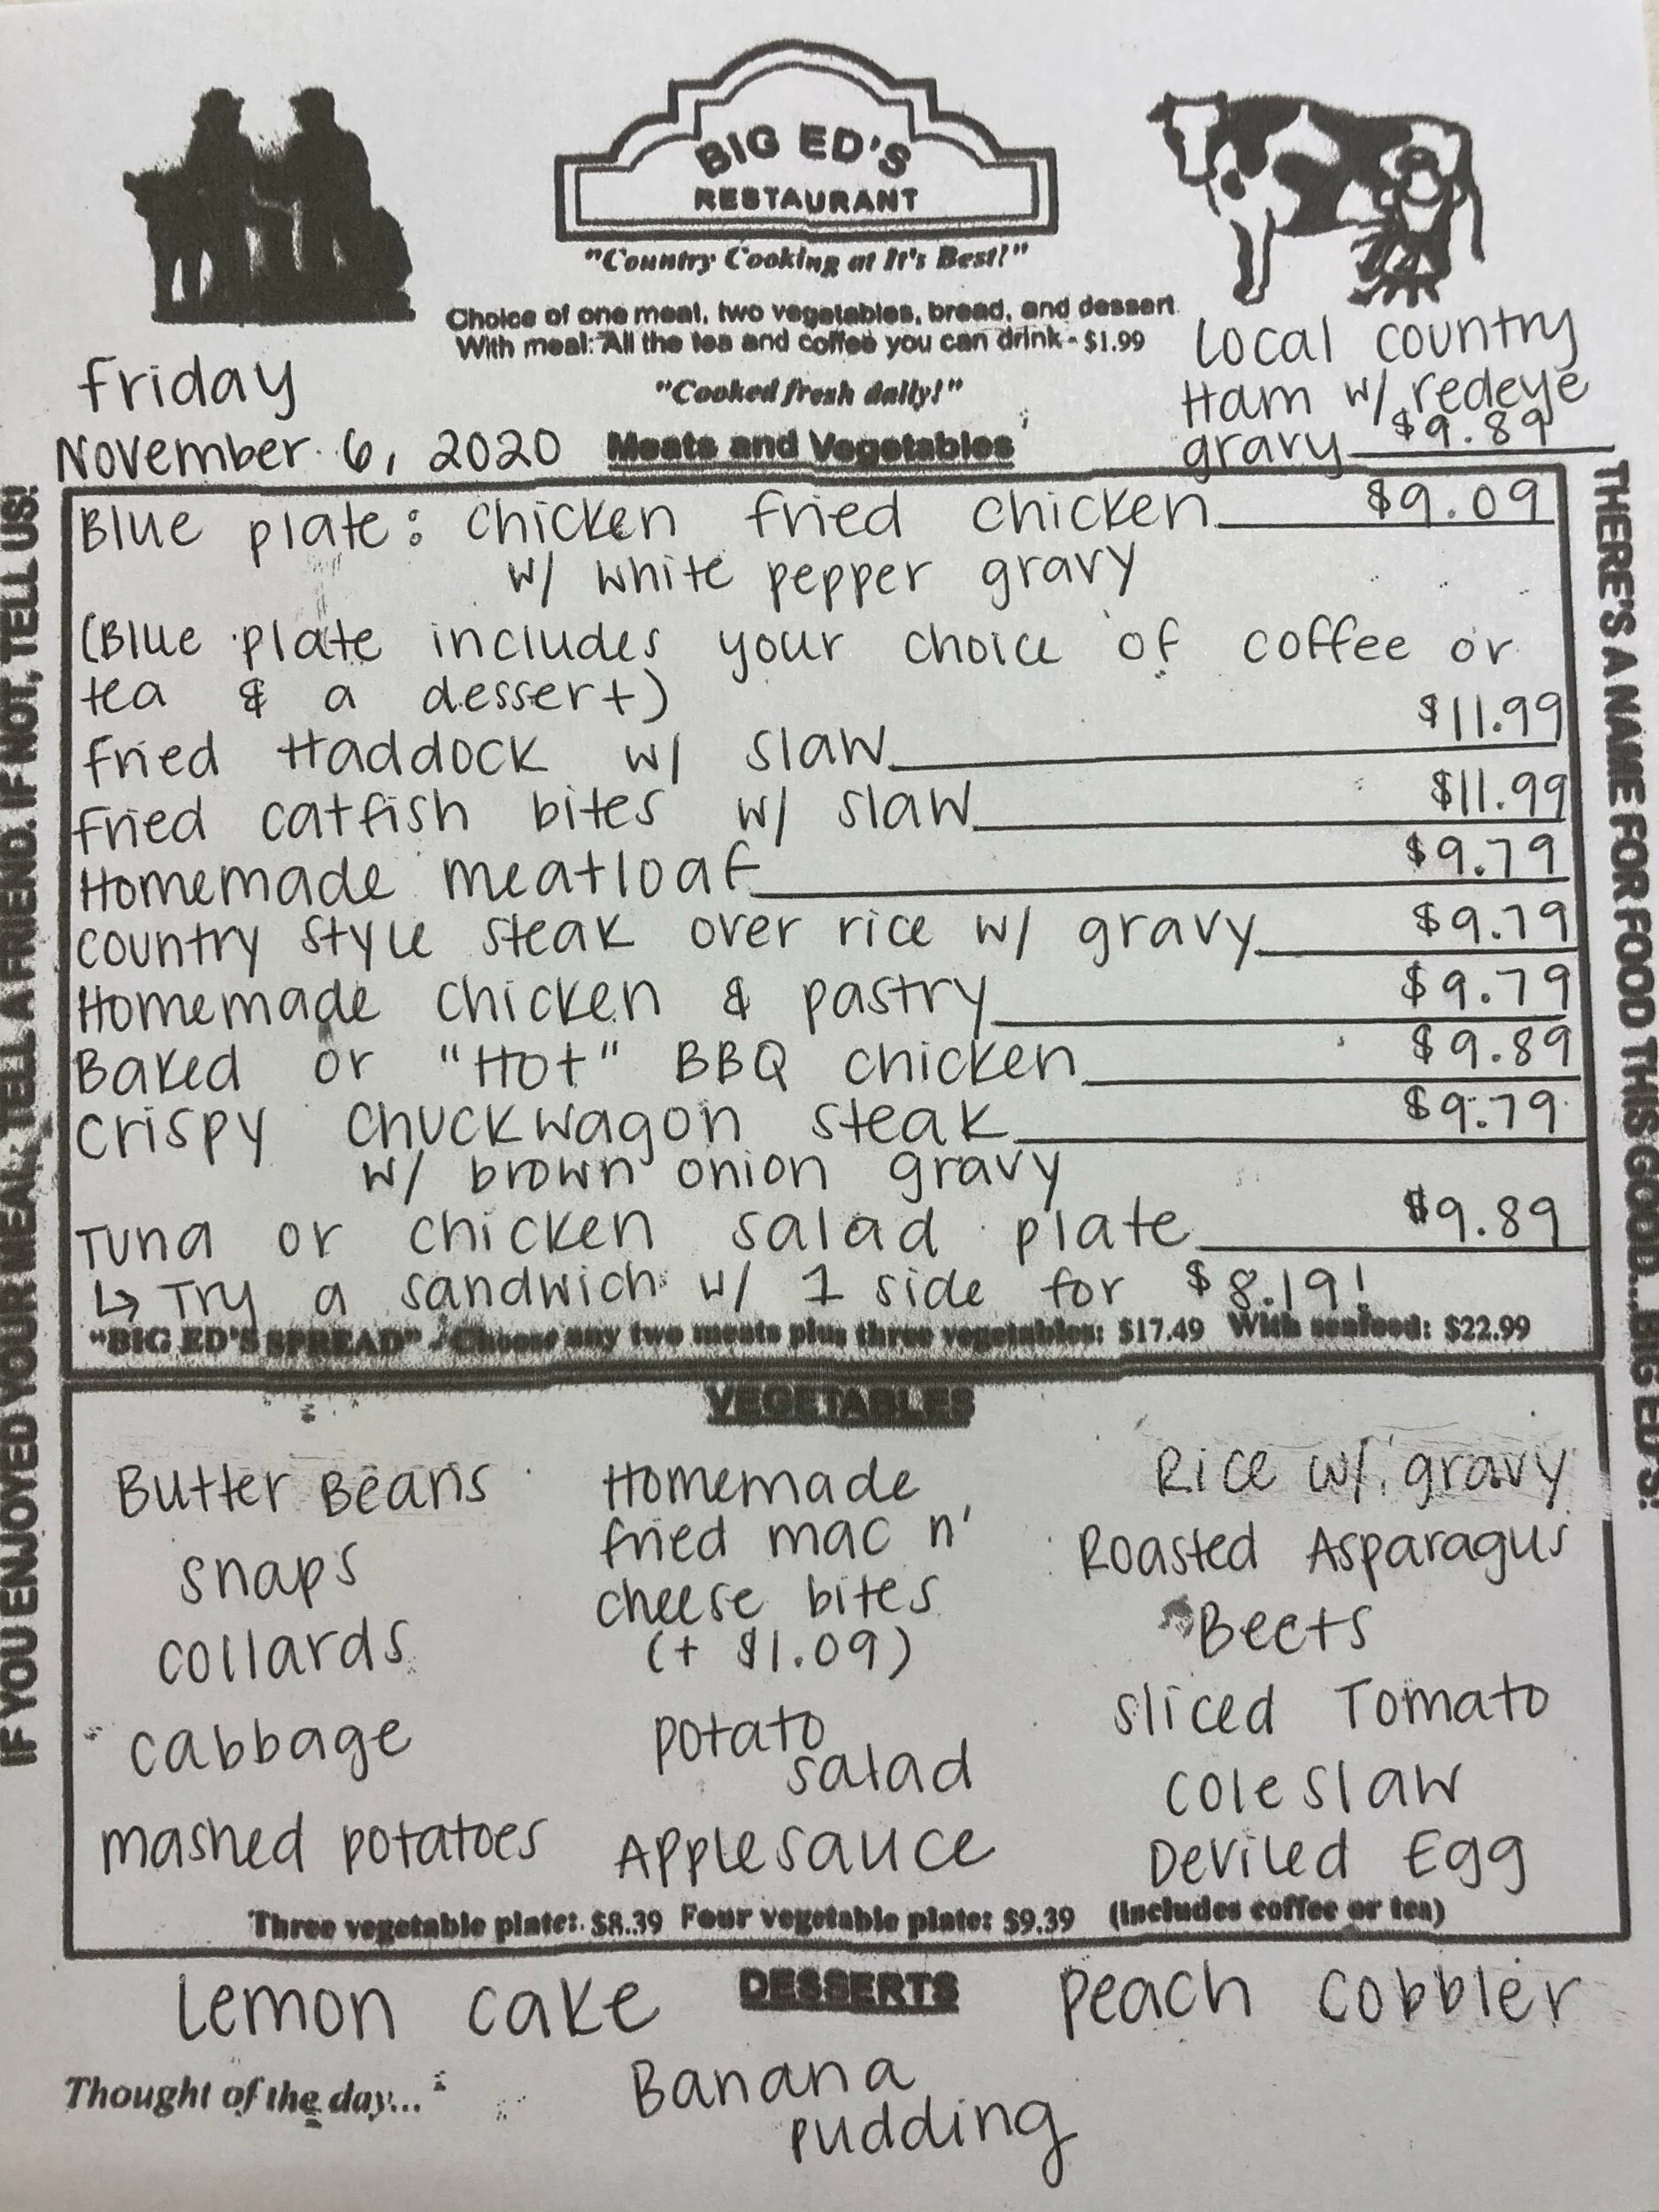 BIG ED'S
RESTAURANT
"Country Cooking at It's Best!"
Choice of one meat, two vegetables, bread, and dessert
With meal: All the tea and coffee you can drink - $1.99
"Cooked fresh daily!"
Local country
Ham w/ redeye
gravy $9.89
Friday
November 6, 2020
Meats and Vegetables
Blue plate: chicken fried chicken $9.09
w/ white pepper gravy
(Blue plate includes your choice of coffee or
tea & a dessert)
Fried Haddock w/ slaw $11.99
Fried catfish bites w/ slaw $11.99
Homemade meatloaf $9.79
Country style steak over rice w/ gravy $9.79
Homemade chicken & pastry $9.79
Baked or "Hot" BBQ chicken $9.89
Crispy chuckwagon steak $9.79
w/ brown onion gravy
Tuna or chicken salad plate $9.89
↳ Try a sandwich w/ 1 side for $8.19!
"BIG ED'S SPREAD" - Choose any two meats plus three vegetables: $17.49 With seafood: $22.99
VEGETABLES
Butter Beans
snaps
collards
cabbage
mashed potatoes
Homemade
fried mac n'
cheese bites
(+ $1.09)
potato
salad
Applesauce
Rice w/ gravy
Roasted Asparagus
Beets
sliced Tomato
coleslaw
Deviled Egg
Three vegetable plate: $8.39 Four vegetable plate: $9.39 (Includes coffee or tea)
DESSERTS
Lemon cake
Peach cobbler
Banana
pudding
Thought of the day...
IF YOU ENJOYED YOUR MEAL, TELL A FRIEND. IF NOT, TELL US!
THERE'S A NAME FOR FOOD THIS GOOD...BIG ED'S!